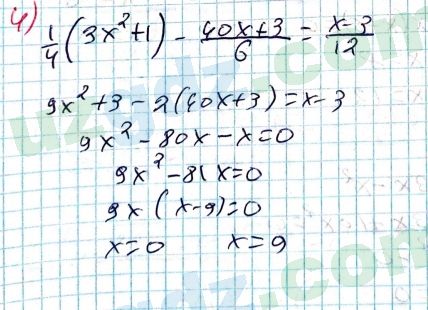 4) 1/4 (3x² + 1) - (40x + 3)/6 = (x - 3)/12
9x² + 3 - 2(40x + 3) = x - 3
9x² - 80x - x = 0
9x² - 81x = 0
9x (x - 9) = 0
x = 0 x = 9